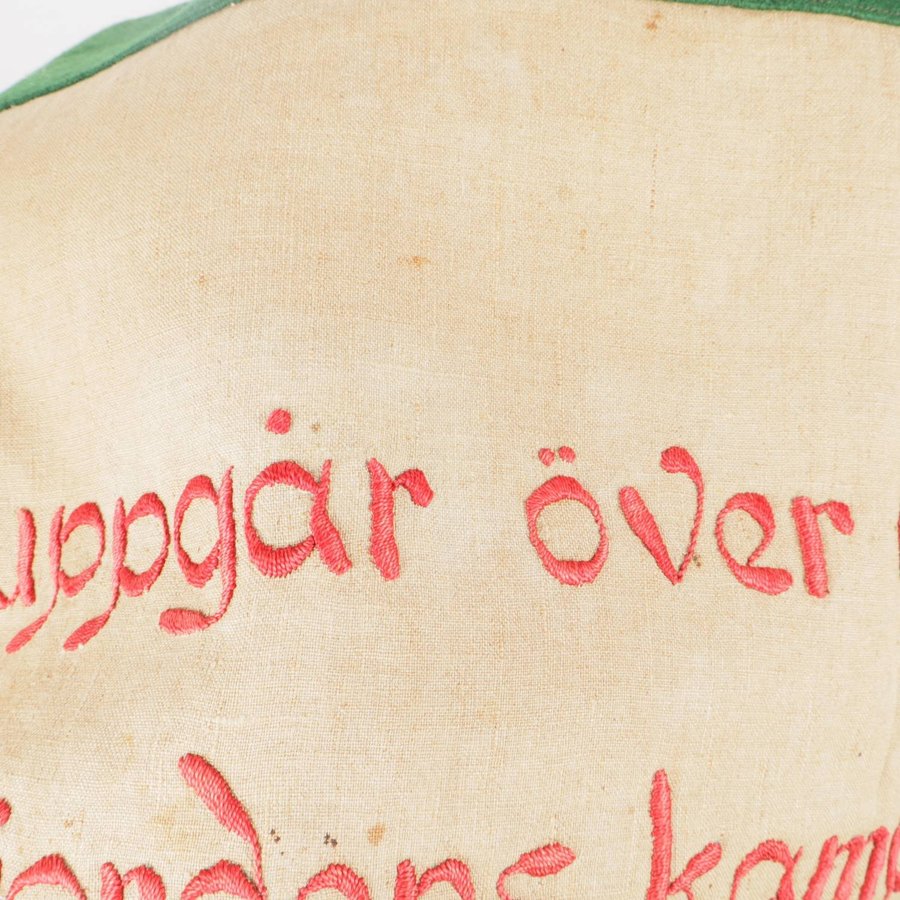 uppgår över
jordens kamp